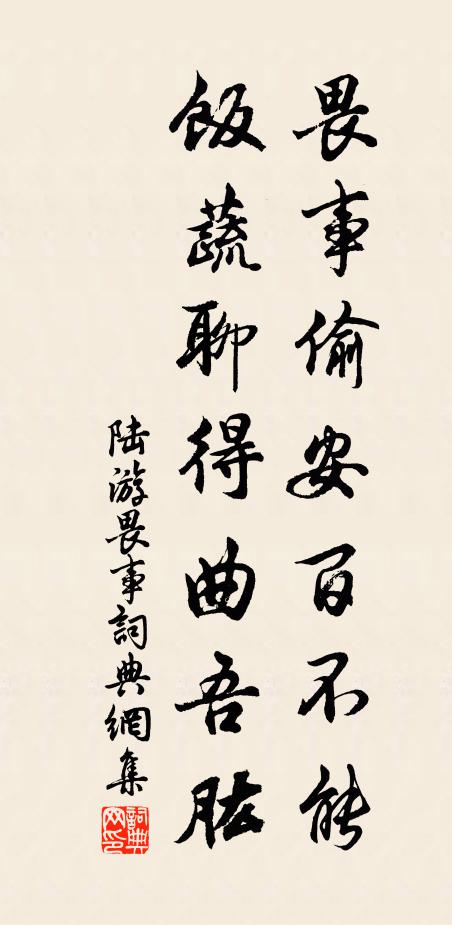 畏事偷安百不能
飯蔬聊得曲吾肱
陸游畏事詞典網集
詞典网印